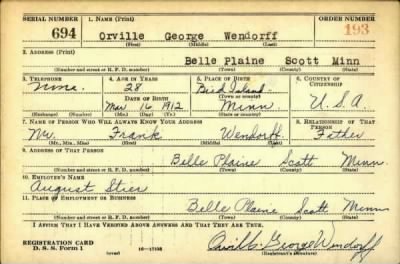 SERIAL NUMBER 1. NAME (Print) ORDER NUMBER
694 Orville George Wendorff 193
(First) (Middle) (Last)
2. ADDRESS (Print)
Belle Plaine Scott Minn
(Number and street or R. F. D. number) (Town) (County) (State)
3. TELEPHONE 4. AGE IN YEARS 5. PLACE OF BIRTH 6. COUNTRY OF CITIZENSHIP
None 28 Bird Island
DATE OF BIRTH (Town or county)
Mar 16 1912 Minn U.S.A.
(Exchange) (Number) (Mo.) (Day) (Yr.) (State or country)
7. NAME OF PERSON WHO WILL ALWAYS KNOW YOUR ADDRESS 8. RELATIONSHIP OF THAT PERSON
Mr. Frank Wendorff Father
(Mr., Mrs., Miss) (First) (Middle) (Last)
9. ADDRESS OF THAT PERSON
Belle Plaine Scott Minn.
(Number and street or R. F. D. number) (Town) (County) (State)
10. EMPLOYER'S NAME
August Stier
11. PLACE OF EMPLOYMENT OR BUSINESS
Belle Plaine Scott Minn
(Number and street or R. F. D. number) (Town) (County) (State)
I AFFIRM THAT I HAVE VERIFIED ABOVE ANSWERS AND THAT THEY ARE TRUE.
REGISTRATION CARD
D. S. S. Form 1 16-17105 Orville George Wendorff
(over) (Registrant's signature)